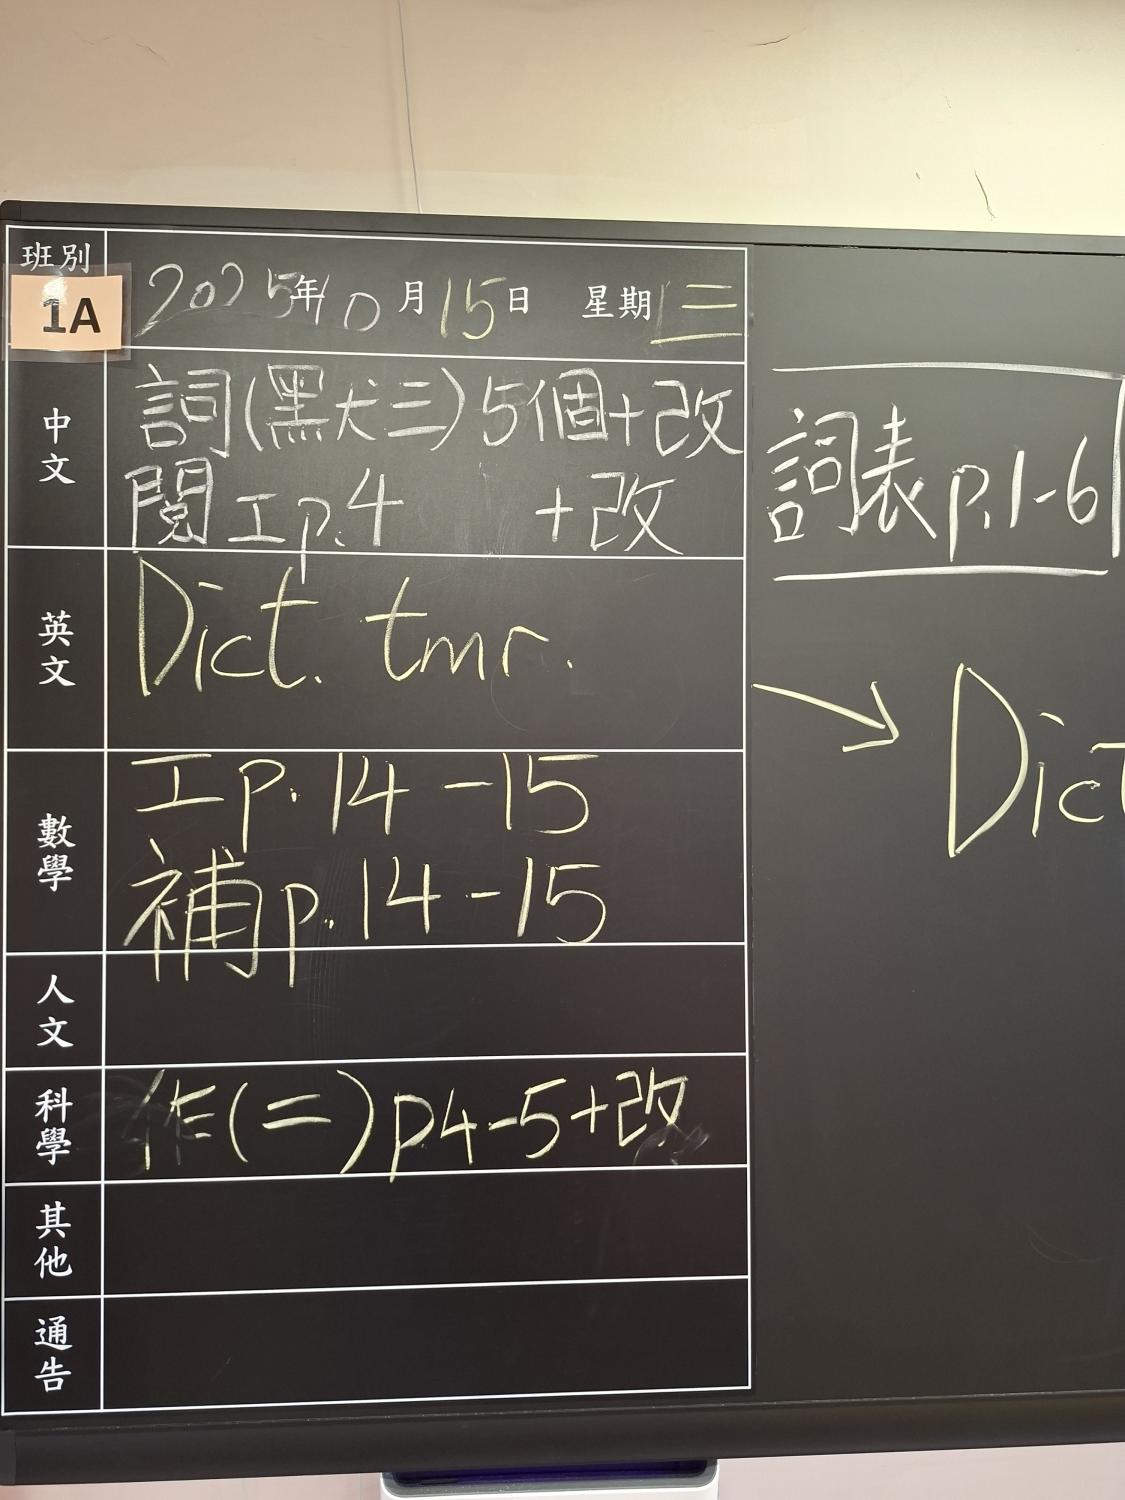 班別
1A
2025年10月15日 星期三
中文
詞(黑犬三)5個+改
閱工p.4 +改
英文
Dict. tmr.
數學
工p.14-15
補p.14-15
人文
科學
作(二)p4-5+改
其他
通告
詞表p.1-6
→ Dict